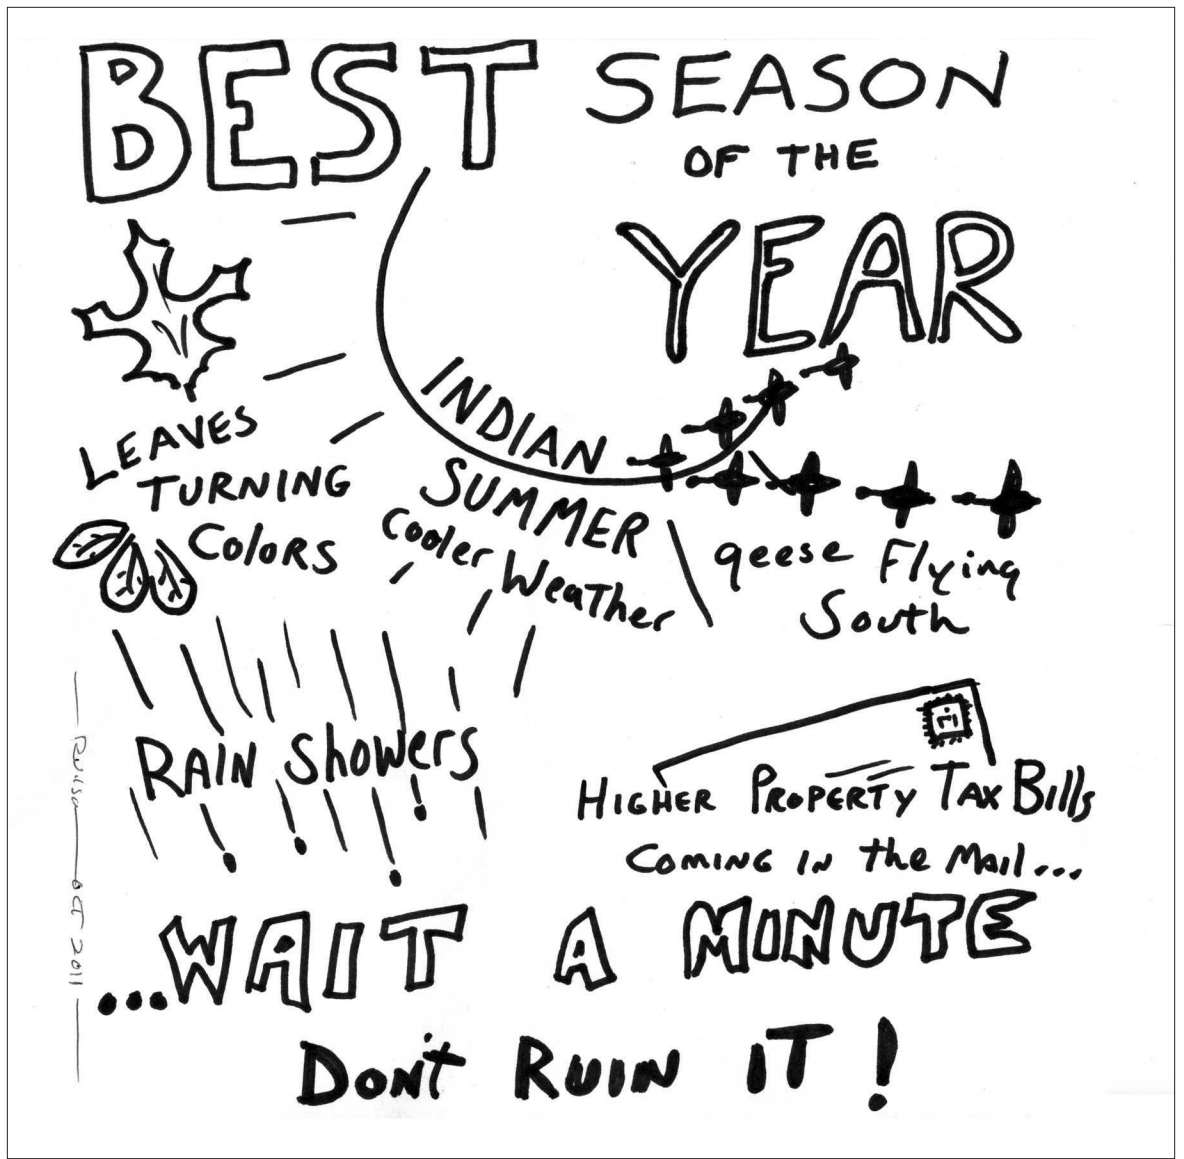 BEST SEASON
OF THE
YEAR
INDIAN
SUMMER
LEAVES
TURNING
Colors
Cooler Weather
geese Flying
South
RAIN Showers
HIGHER PROPERTY TAX Bills
COMING IN the MAIL...
...WAIT A MINUTE
DON'T RUIN IT!
OCT 2011